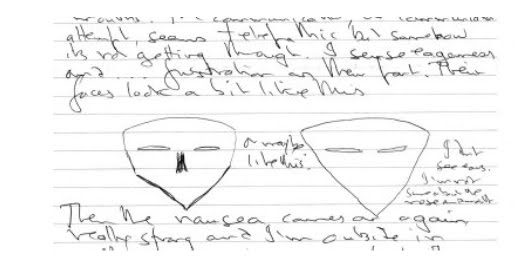 attempt, seems telepathic but somehow
its not getting through. I sense eagerness
and frustration on their part. Their
faces look a bit like this
or maybe
like this.
I don't
see ears.
I'm not
sure about the
nose or mouth
Then the nausea comes on again
really strong and I'm outside in